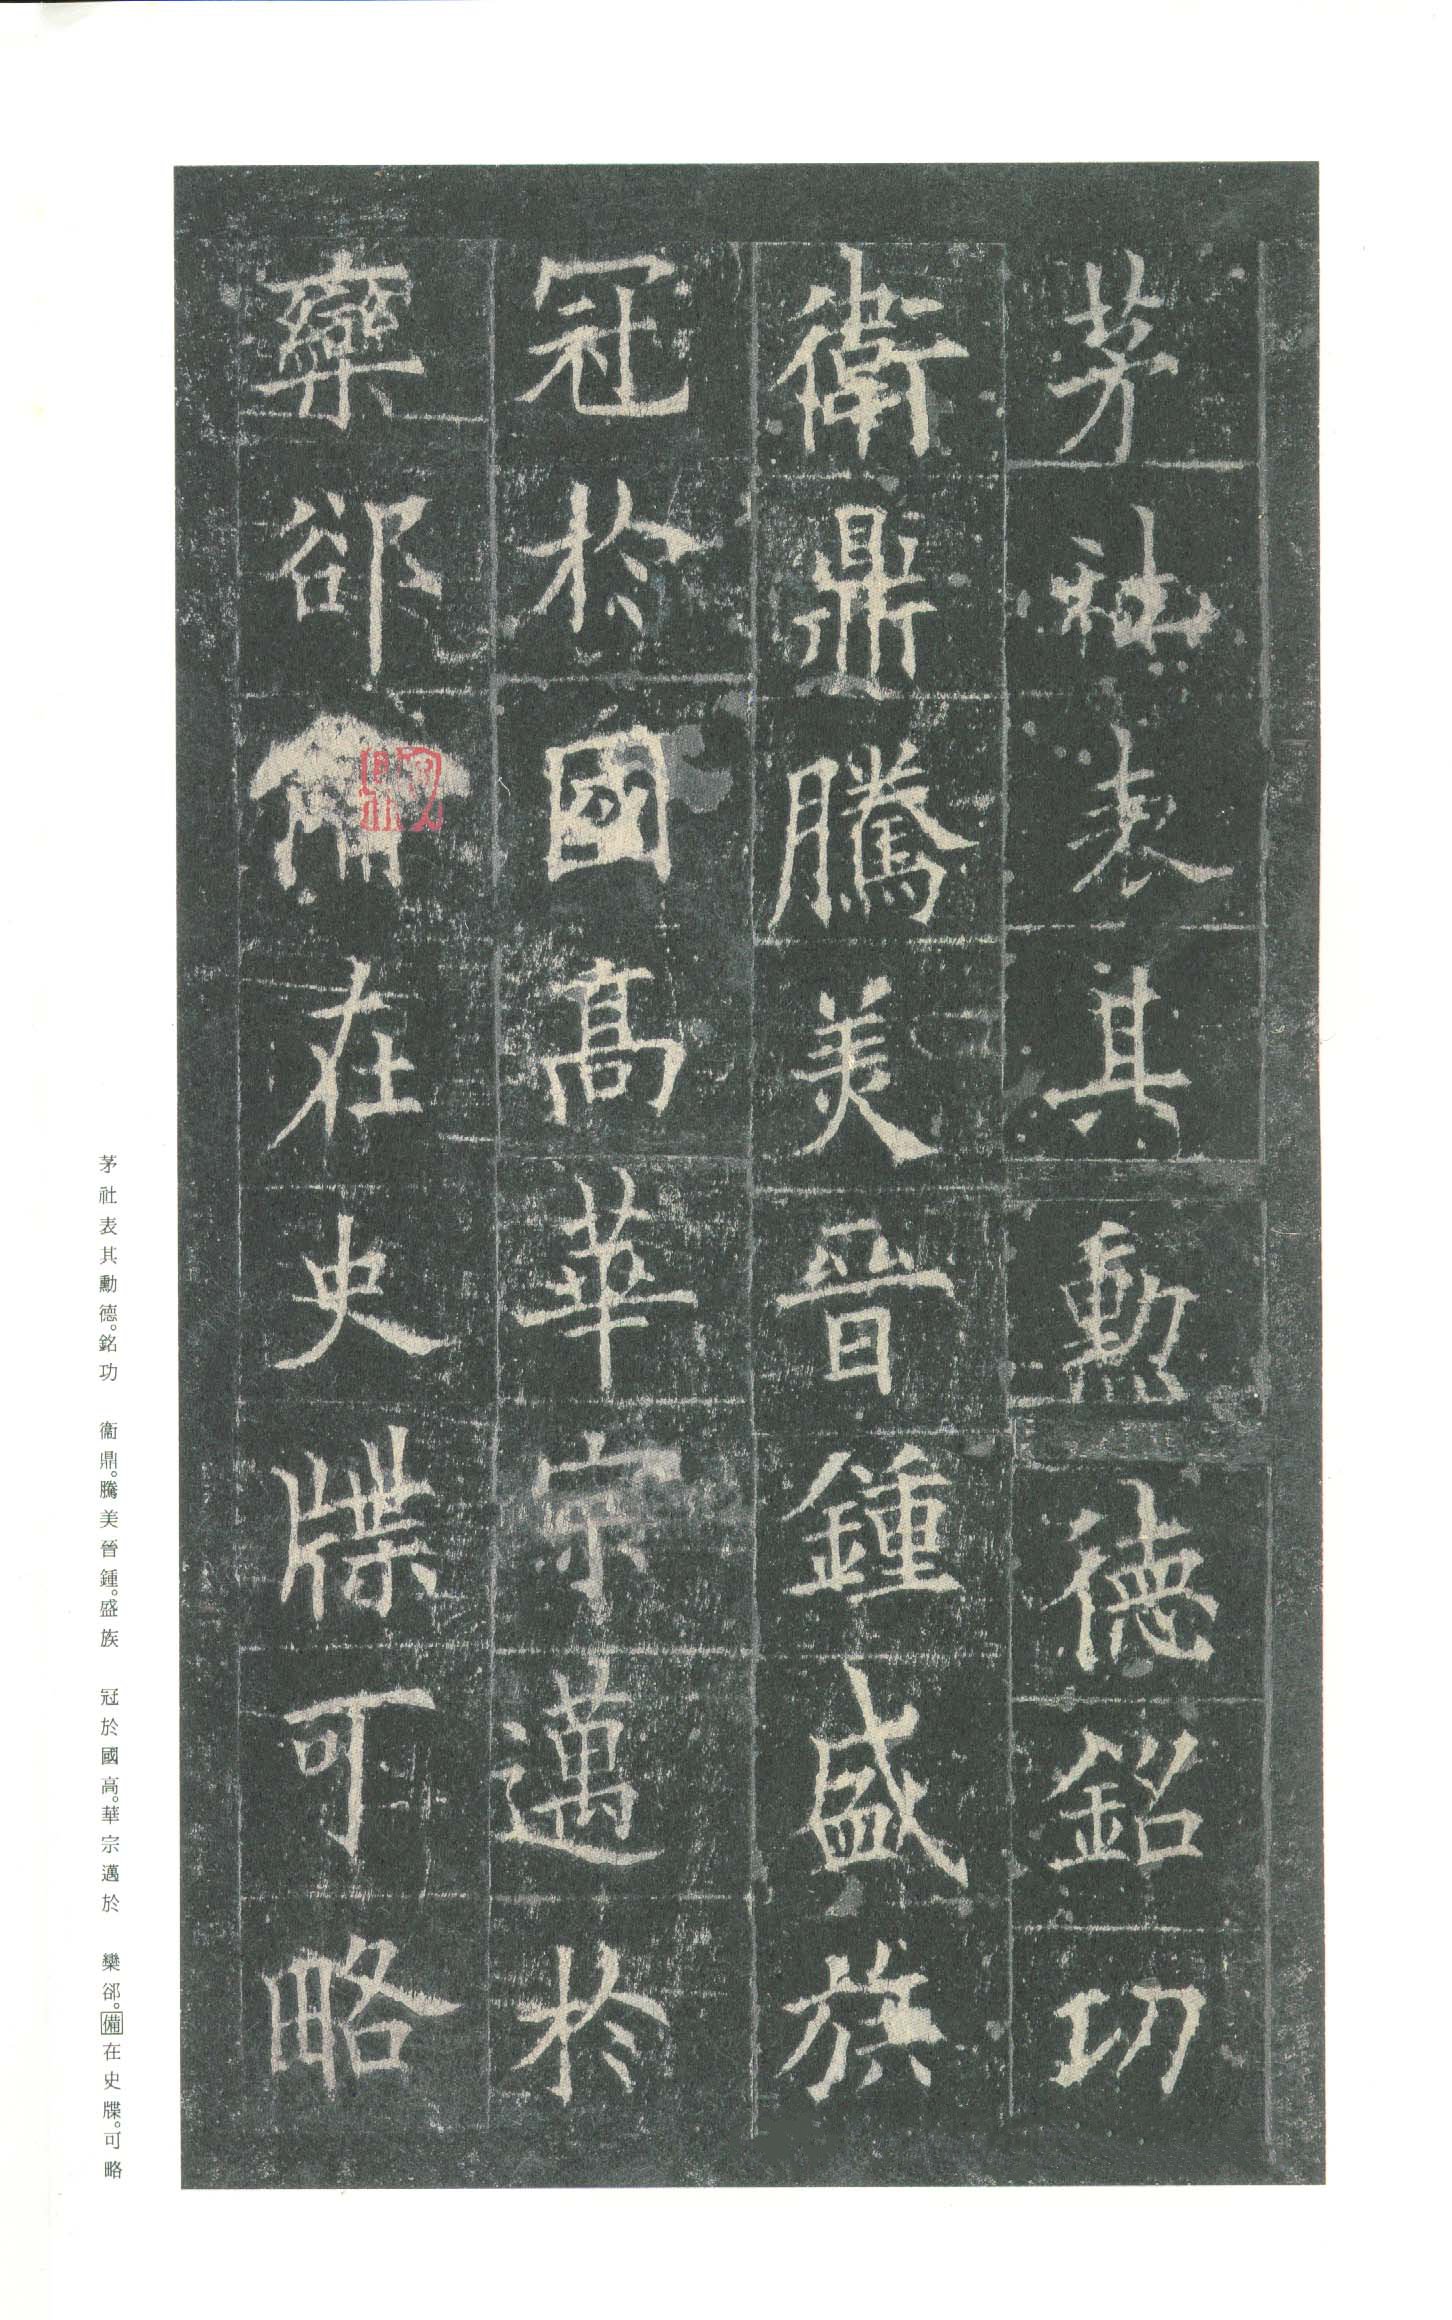 茅社表其勳德銘功
衛鼎騰美晉鍾盛族
冠於國高華宗邁於
欒郤備在史牒可略
茅社表其勳德。銘功 衞鼎。騰美晉鍾。盛族 冠於國高。華宗邁於 欒郤。備在史牒。可略